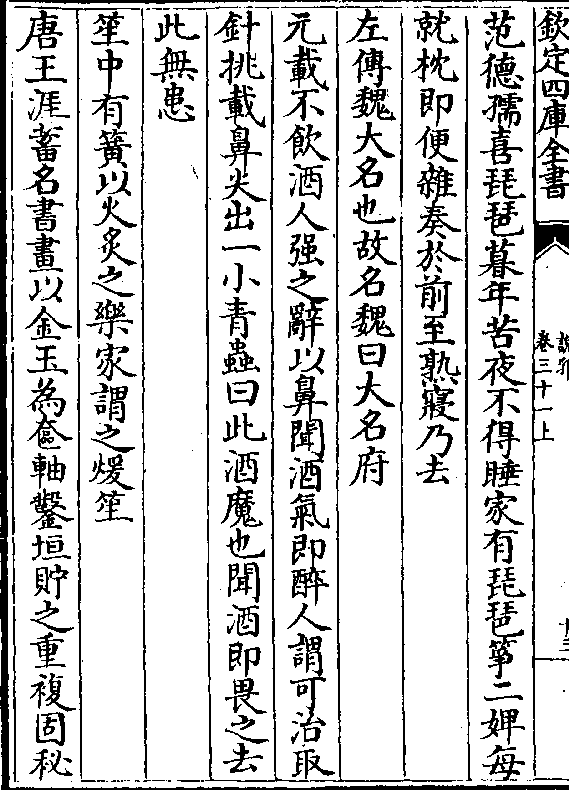 欽定四庫全書
說郛
卷三十一上
范德孺喜琵琶暮年苦夜不得睡家有琵琶箏二婢每
就枕即便雜奏於前至熟寢乃去
左傳魏大名也故名魏曰大名府
元載不飲酒人强之辭以鼻聞酒氣即醉人謂可治取
針挑載鼻尖出一小青蟲曰此酒魔也聞酒即畏之去
此無患
笙中有簧以火炙之樂家謂之煖笙
唐王涯蓄名書畫以金玉為奩軸鑿垣貯之重複固秘